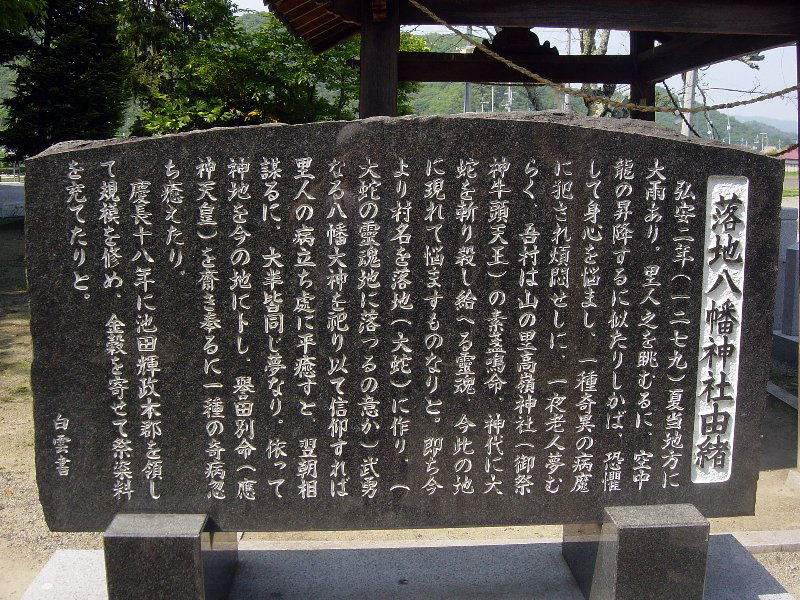 落地八幡神社由緒
弘安二年（一二七九）夏当地方に
大雨あり。里人之を眺むるに、空中
龍の昇降するに似たりしかば、恐懼
して身心を悩まし、一種奇異の病魔
に犯され煩悶せしに、一夜老人夢む
らく 吾村は山の里高嶺神社（御祭
神牛頭天王）の素盞鳴命、神代に大
蛇を斬り殺し給へる霊魂 今此の地
に現れて悩ますものなりと。即ち今
より村名を落地（大蛇）に作り、（
大蛇の霊魂地に落つるの意か）武勇
なる八幡大神を祀り以て信仰すれば
里人の病立ち處に平癒すと、翌朝相
謀るに、大半皆同じ夢なり。依って
神地を今の地に卜し、譽田別命（應
神天皇）を齋き奉るに一種の奇病忽
ち癒えたり。
慶長十八年に池田輝政本郡を領し
て規模を修め、金穀を寄せて祭粢料
を充てたりと。
白雲書